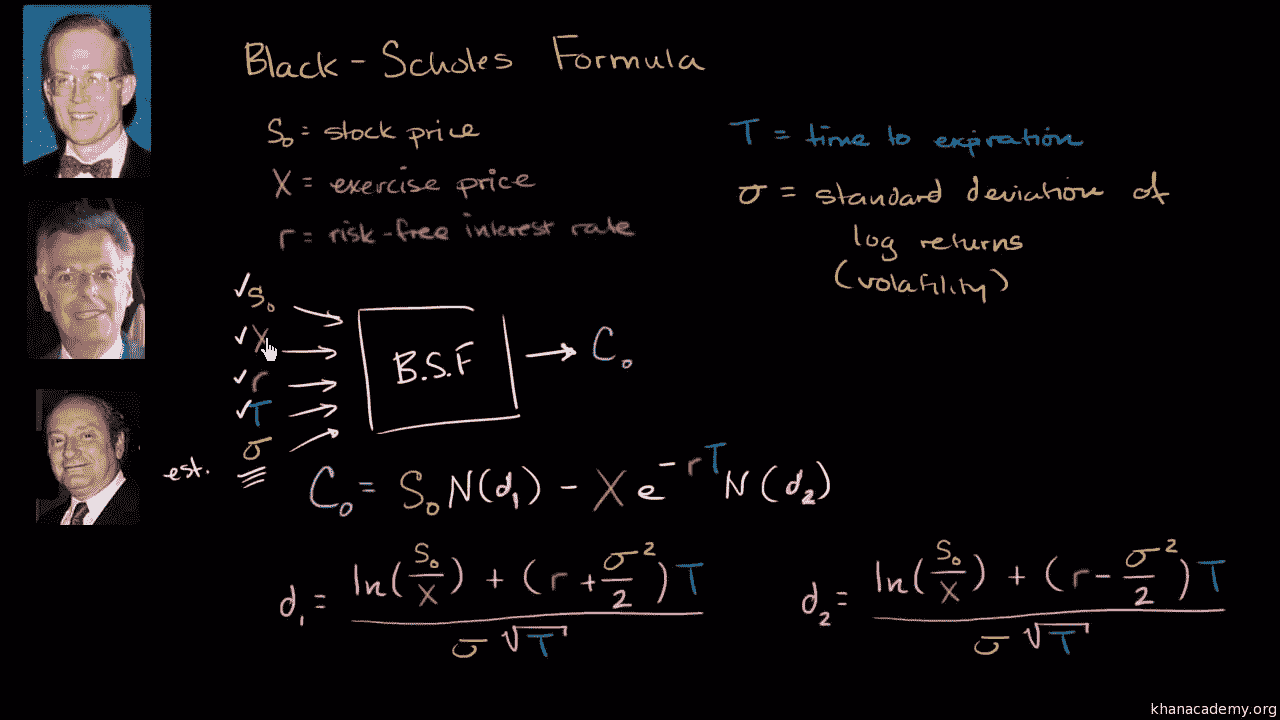 Black-Scholes Formula
S₀ = stock price
X = exercise price
r = risk-free interest rate
T = time to expiration
σ = standard deviation of
log returns
(volatility)
✓S₀
✓X
✓r
✓T
est. σ
B.S.F
C₀
C₀ = S₀N(d₁) - Xe^(-rT)N(d₂)
d₁ = (ln(S₀/X) + (r + σ²/2)T) / (σ√T)
d₂ = (ln(S₀/X) + (r - σ²/2)T) / (σ√T)
khanacademy.org